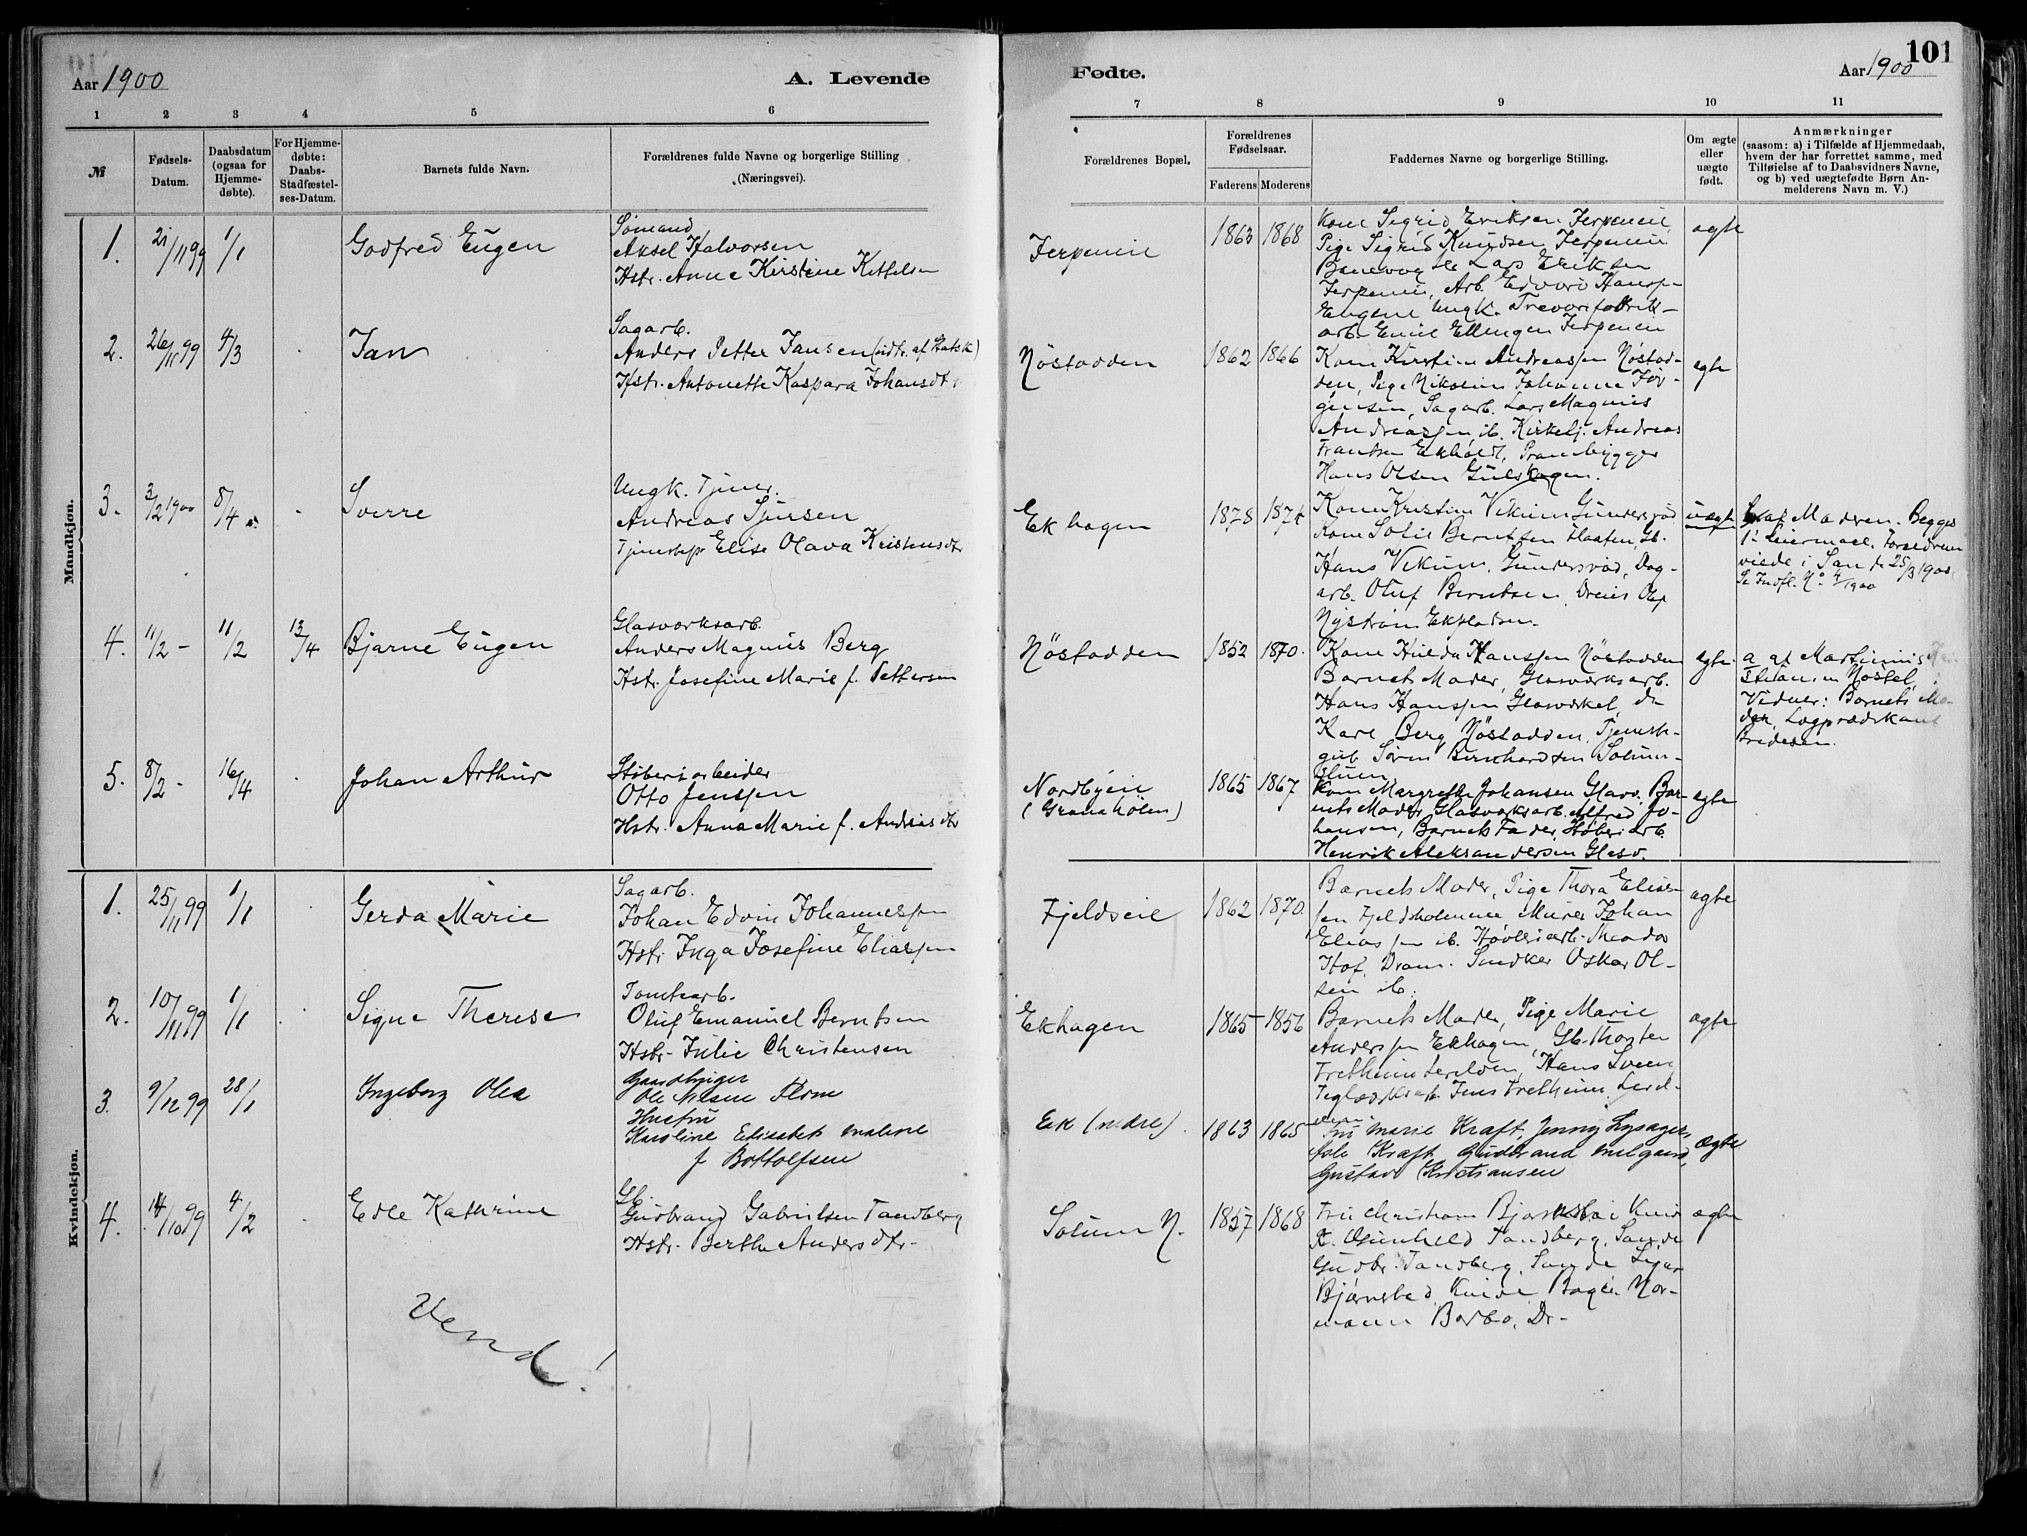 101
Aar 1900
A. Levende
Fødte.
Aar 1900
1 2 3 4 5 6
7 8 9 10 11
№
Fødsels-
Datum.
Daabsdatum
(ogsaa for
Hjemme-
døbte).
For Hjemme-
døbte:
Daabs-
Stadfæstel-
ses-Datum.
Barnets fulde Navn.
Forældrenes fulde Navne og borgerlige Stilling
(Næringsvei).
Forældrenes Bopæl.
Forældrenes
Fødselsaar.
Faderens Moderens
Faddernes Navne og borgerlige Stilling.
Om ægte
eller
uægte
født.
Anmærkninger
(saasom: a) i Tilfælde af Hjemmedaab,
hvem der har forrettet samme, med
Tilføielse af to Daabsvidners Navne,
og b) ved uægtefødte Børn An-
melderens Navn m. V.)
Mandkjøn.
1. 21/11 99 1/1 Godfred Eugen
Sømand
Aksel Halvorsen
Hstr. Anne Kirstine Kittelsen
1863 1868
Kone Sigrid Eriksen
Pige Sigrid Knudsen
Lars Eriksen
Arb. Edvard Hans-
Eugene Ungk.
arb. Emil Ellingsen
ægte
2. 26/11 99 4/3 Jan
Sagarb.
Anders Petter Jansen (udtr. af Statsk)
Hstr. Antonette Kaspara Johansdtr
Nøstodden
1862 1866
Kone Kirstine Andreassen Nøstod-
den, Pige Nikoline Johanne Jør-
gensen, Sagarb. Lars Magnus
Andreassen ib. Kirkelj. Andreas
Frantsen Ekholdt, Prambygger
Hans Olsen Gulskogen.
egte
3. 3/2 1900 8/4 Sverre
Ungk. Tjener.
Andreas Sjursen
Tjenstepi Elise Olava Kristensdtr
Ekhagen
1878 1874
Kone Kristine Vikum Gundersrød
Kone Sofie Berntsen Flaaten, Gb.
Hans Vikum, Gundersrød, Dag-
arb. Oluf Berntsen, Dreier Olaf
Nystrøm Ekholden.
uægte
af Moderen. Begges
1ste Leiermaal. Forældrene
viede i San de 25/3 1900.
Se Indfl. No 4/1900
4. 11/2 - 11/2 13/4 Bjarne Eugen
Glasværksarb.
Anders Magnus Berg
Hstr. Josefine Marie f. Pettersen
Nøstodden
1852 1870.
Kone Hulda Hanssen Nøstodden
Barnets Moder, Glasværksarb.
Hans Hanssen Glasværket, do
Karl Berg Nøstodden, Tjeneste-
gut Søren Bernhardsen Solum-
egte.
a af Martinius
Vidner: Barnets Mo-
der, Lægprædikant
Bredesen.
5. 8/2 - 16/4 Johan Arthur
Støberiarbeider
Otto Jenssen
Hstr. Anna Marie f. Andreasdtr
Nordbyen
(Granaholen)
1865 1867
Kone Margrethe Johansen Glasv, Bar-
nets Moder, Glasværksarb. Alfred Jo-
hansen, Barnets Fader, Støberiarb.
Henrik Aleksandersen Glasv.
egte
Kvindekjøn.
1. 25/11 99 1/1 Gerda Marie
Sagarb.
Johan Edvin Johannessen
Hstr. Inga Josefine Eliassen
Fjeldseie
1862 1870.
Barnets Moder, Pige Thora Elias-
sen Fjeldsholmene Murer Johan
Eliassen ib. Høvleriarb. Theodor
Hof. Dram. Snedker Oskar Ol-
sen ib.
ægte
2. 10/11 99 1/1 Signe Therese
Tomtearb.
Oluf Emanuel Berntsen
Hstr. Julie Christensen
Ekhagen
1865 1856
Barnets Moder, Pige Marie
Anderssen Ekhagen, Gb. Thorsten
Fretheim Lerdalen, Hans Sveen
Jens Fretheim
ægte
3. 9/12 99 28/1 Ingeborg Olea
Gaardbruger
Ole Nilsen Flom
Hustru
Karoline Elisabet Maline
f Bottolfsen
Ek (nedre).
1863 1865
Fru Marie Kraft, Jenny Lysager,
Kraft, Gudbrand Melgaard,
Gustav Kristiansen
ægte
4. 14/10 99 4/2 Edle Kathrine
Gb.
Gudbrand Gabrielsen Tandberg
Hstr. Berthe Andersdtr.
Solum N.
1857 1868
Fru Christiane Bjørnstad Knive
K. Gunhild Tandberg, Sande
Gudbr. Tandberg, Sande
Bjørnstad Knive Bager Nor-
mann Barbo, Dr-
ægte
Vend!